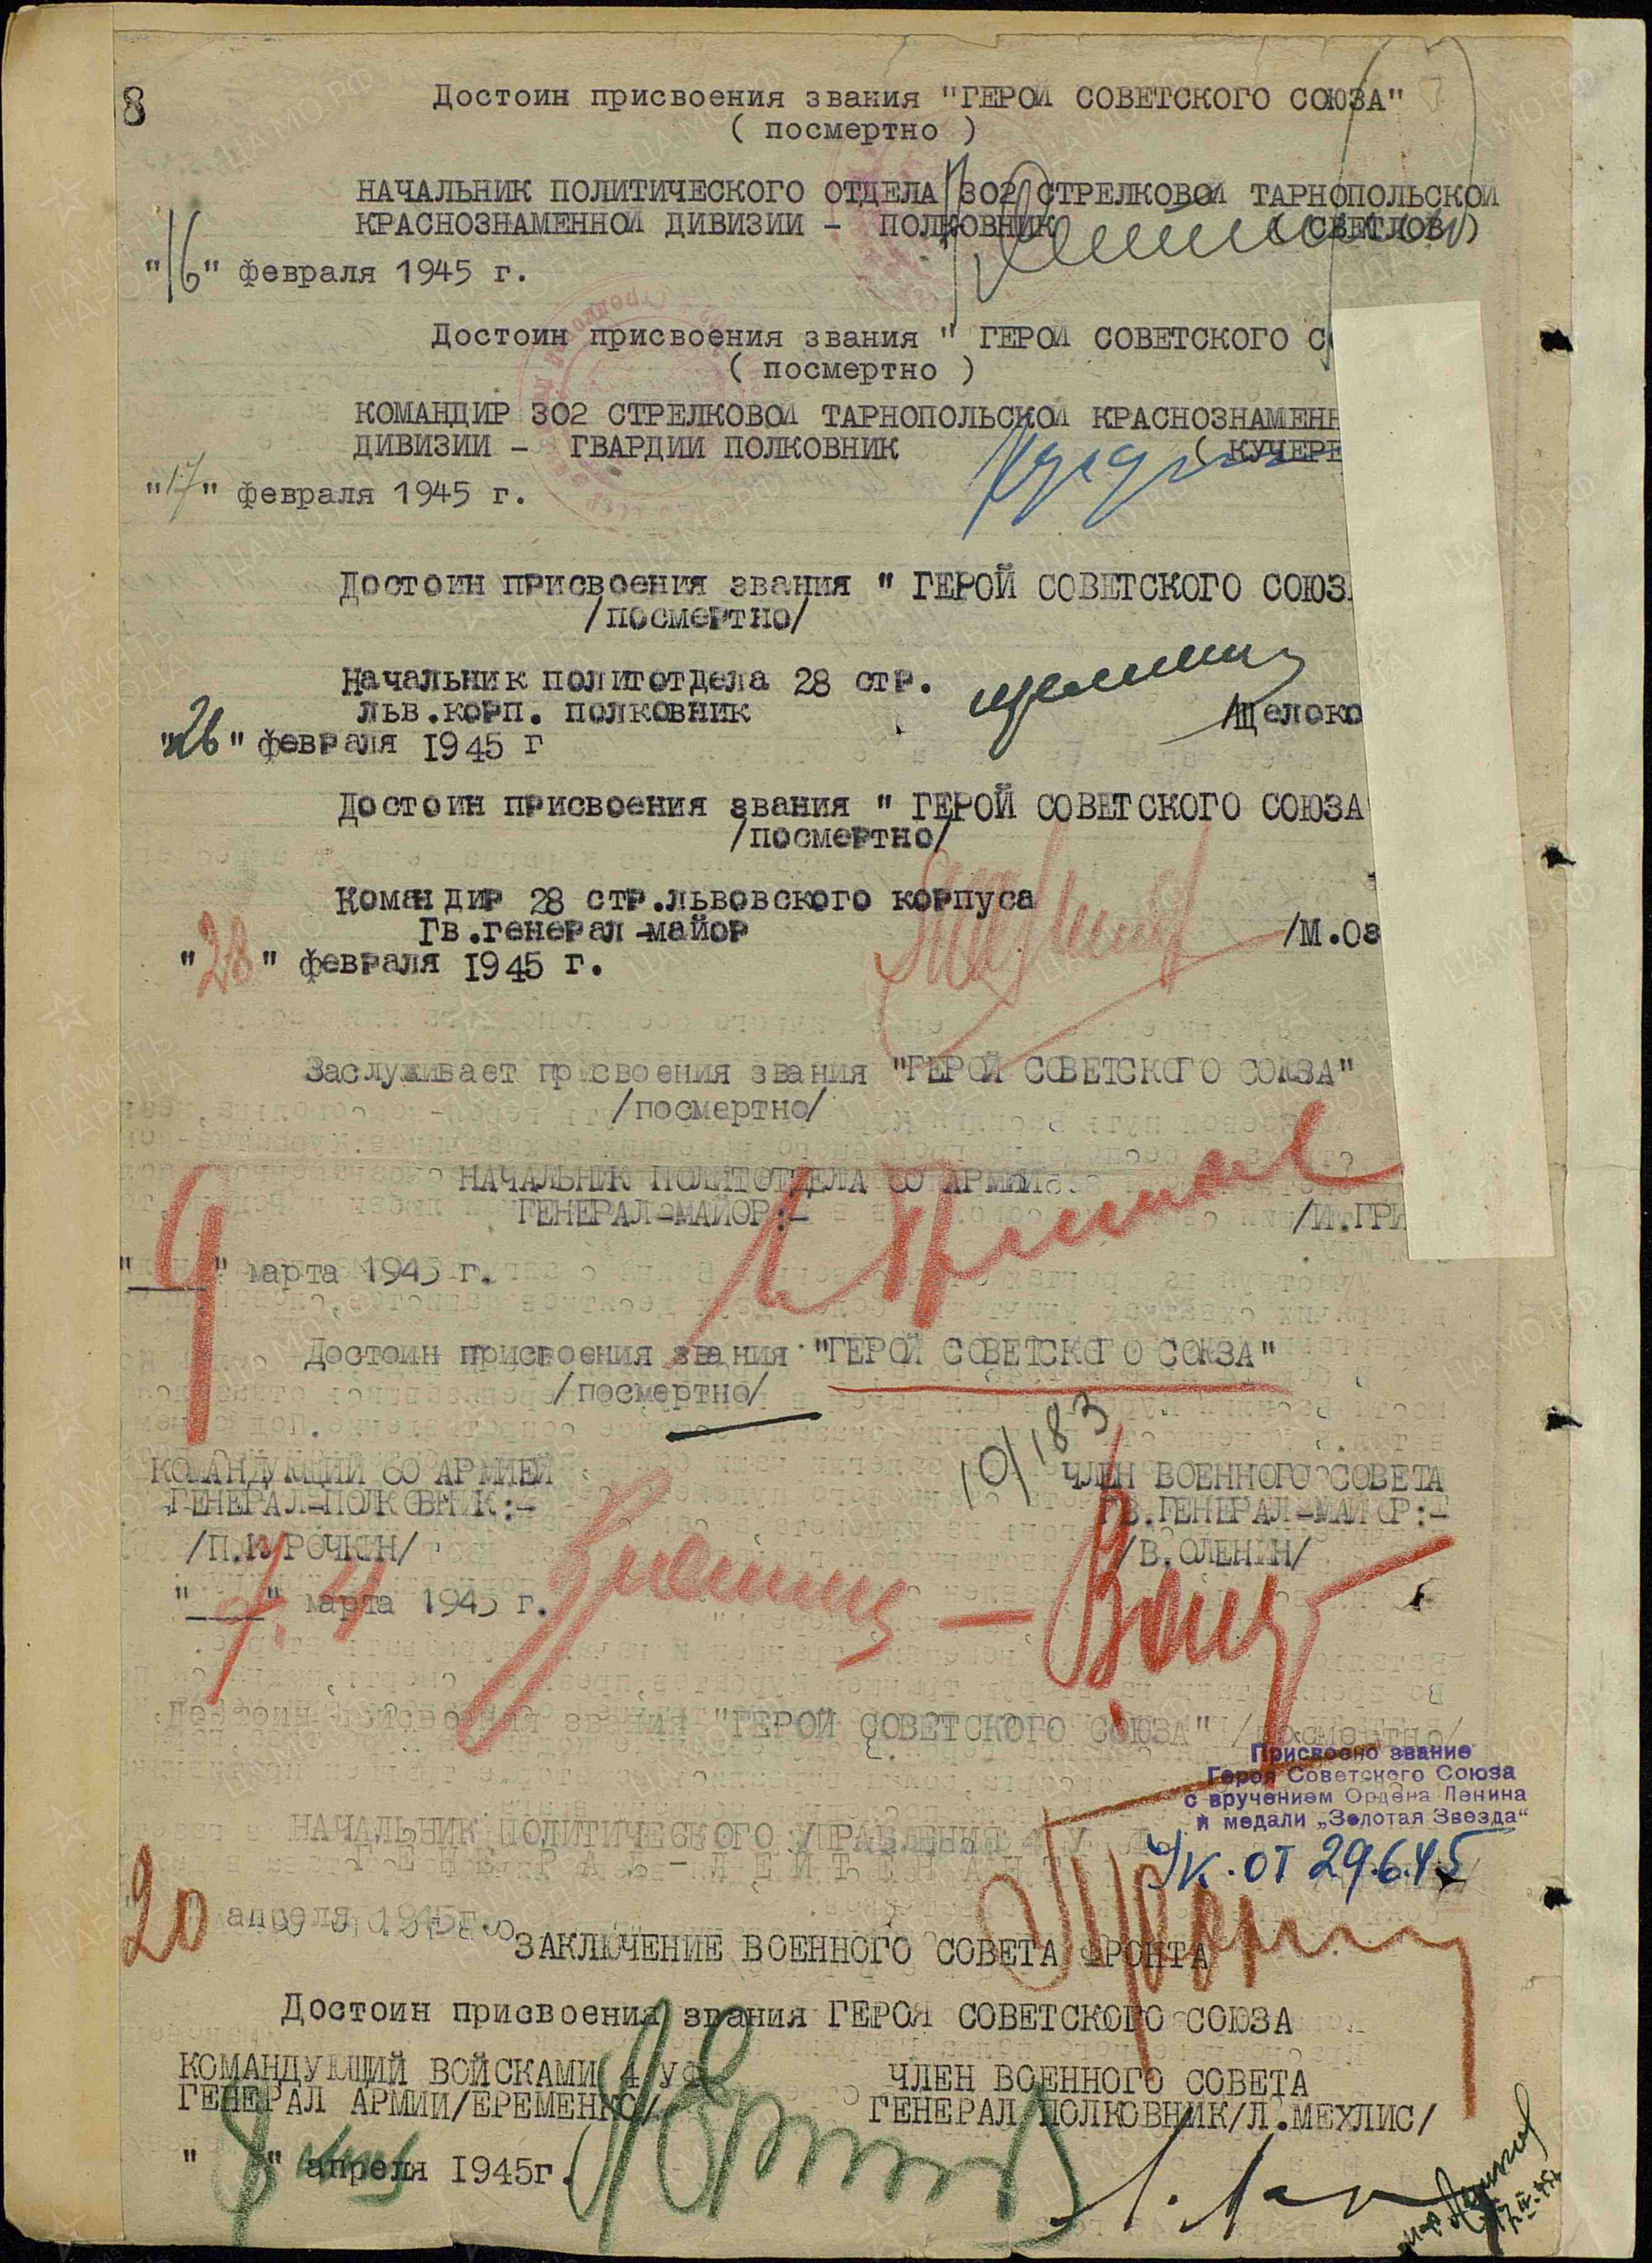 8
Достоин присвоения звания "ГЕРОЙ СОВЕТСКОГО СОЮЗА"
( посмертно )
НАЧАЛЬНИК ПОЛИТИЧЕСКОГО ОТДЕЛА 302 СТРЕЛКОВОЙ ТАРНОПОЛЬСКОЙ
КРАСНОЗНАМЕННОЙ ДИВИЗИИ - ПОЛКОВНИК (СВЕТЛОВ)
"16" февраля 1945 г.
Достоин присвоения звания " ГЕРОЙ СОВЕТСКОГО С
( посмертно )
КОМАНДИР 302 СТРЕЛКОВОЙ ТАРНОПОЛЬСКОЙ КРАСНОЗНАМЕНН
ДИВИЗИИ - ГВАРДИИ ПОЛКОВНИК ( КУЧЕРЕ
"17" февраля 1945 г.
Достоин присвоения звания " ГЕРОЙ СОВЕТСКОГО СОЮЗ
/посмертно/
Начальник политотдела 28 стр.
льв.корп. полковник /Щелоко
"26" февраля 1945 г
Достоин присвоения звания " ГЕРОЙ СОВЕТСКОГО СОЮЗА
/посмертно/
Командир 28 стр.львовского корпуса
Гв.генерал-майор /М.Оз
"28" февраля 1945 г.
Заслуживает присвоения звания "ГЕРОЙ СОВЕТСКОГО СОЮЗА"
/посмертно/
НАЧАЛЬНИК ПОЛИТОТДЕЛА 60 АРМИИ
ГЕНЕРАЛ-МАЙОР:- /И.ГРИ
"4" марта 1945 г.
Достоин присвоения звания "ГЕРОЙ СОВЕТСКОГО СОЮЗА"
/посмертно/
10/183
КОМАНДУЮЩИЙ 60 АРМИЕЙ ЧЛЕН ВОЕННОГО СОВЕТА
ГЕНЕРАЛ-ПОЛКОВНИК:- ГВ.ГЕНЕРАЛ-МАЙОР:-
/П.КУРОЧКИН/ /В.ОЛЕНИН/
"____" марта 1945 г.
Достоин присвоения звания "ГЕРОЙ СОВЕТСКОГО СОЮЗА" /посмертно/
Присвоено звание
Героя Советского Союза
с вручением Ордена Ленина
и медали „Золотая Звезда“
Ук. от 29.6.45
НАЧАЛЬНИК ПОЛИТИЧЕСКОГО УПРАВЛЕНИЯ 4 У
ГЕНЕРАЛ-ЛЕЙТЕНАНТ
20 апреля 1945г.
ЗАКЛЮЧЕНИЕ ВОЕННОГО СОВЕТА ФРОНТА
Достоин присвоения звания ГЕРОЯ СОВЕТСКОГО СОЮЗА
КОМАНДУЮЩИЙ ВОЙСКАМИ 4 УФ ЧЛЕН ВОЕННОГО СОВЕТА
ГЕНЕРАЛ АРМИИ/ЕРЕМЕНКО/ ГЕНЕРАЛ ПОЛКОВНИК/Л.МЕХЛИС/
"8" апреля 1945г.